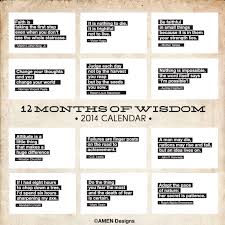 Faith is
taking the first step
even when you don't
see the whole staircase.
It is nothing to die.
It is dreadful
not to live.
Be faithful
in small things
because it is in them that
your strength lies.
Mother Teresa
Change your thoughts
and you
change your world.
Judge each day
not by the harvest
you reap
but by the seeds
you plant.
Nothing is impossible,
the word itself says
I'm possible!
12 MONTHS OF WISDOM
• 2014 CALENDAR •
Attitude is a
little thing
that makes a
huge difference.
Failures are finger posts
on the road to
achievement.
C.S. Lewis
A man may die,
nations may rise and fall,
but an idea lives on.
If I had eight hours
to chop down a tree,
I'd spend six hours
sharpening my axe.
Do the thing
you fear the most
and the death of fear
is certain.
Adopt the pace
of nature;
her secret is patience.
©AMEN Designs